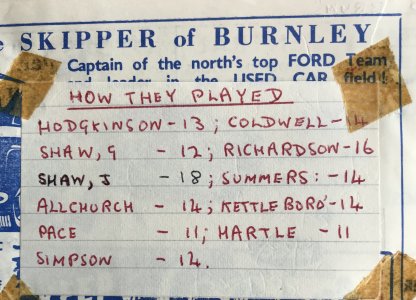 e SKIPPER of BURNLEY
Captain of the north's top FORD Team
and leader in the USED CAR field!
HOW THEY PLAYED
HODGKINSON - 13; COLDWELL - 14
SHAW, G - 12; RICHARDSON - 16
SHAW, J - 18; SUMMERS: - 14
ALLCHURCH - 14; KETTLEBORO' - 14
PACE - 11; HARTLE - 11
SIMPSON - 14.